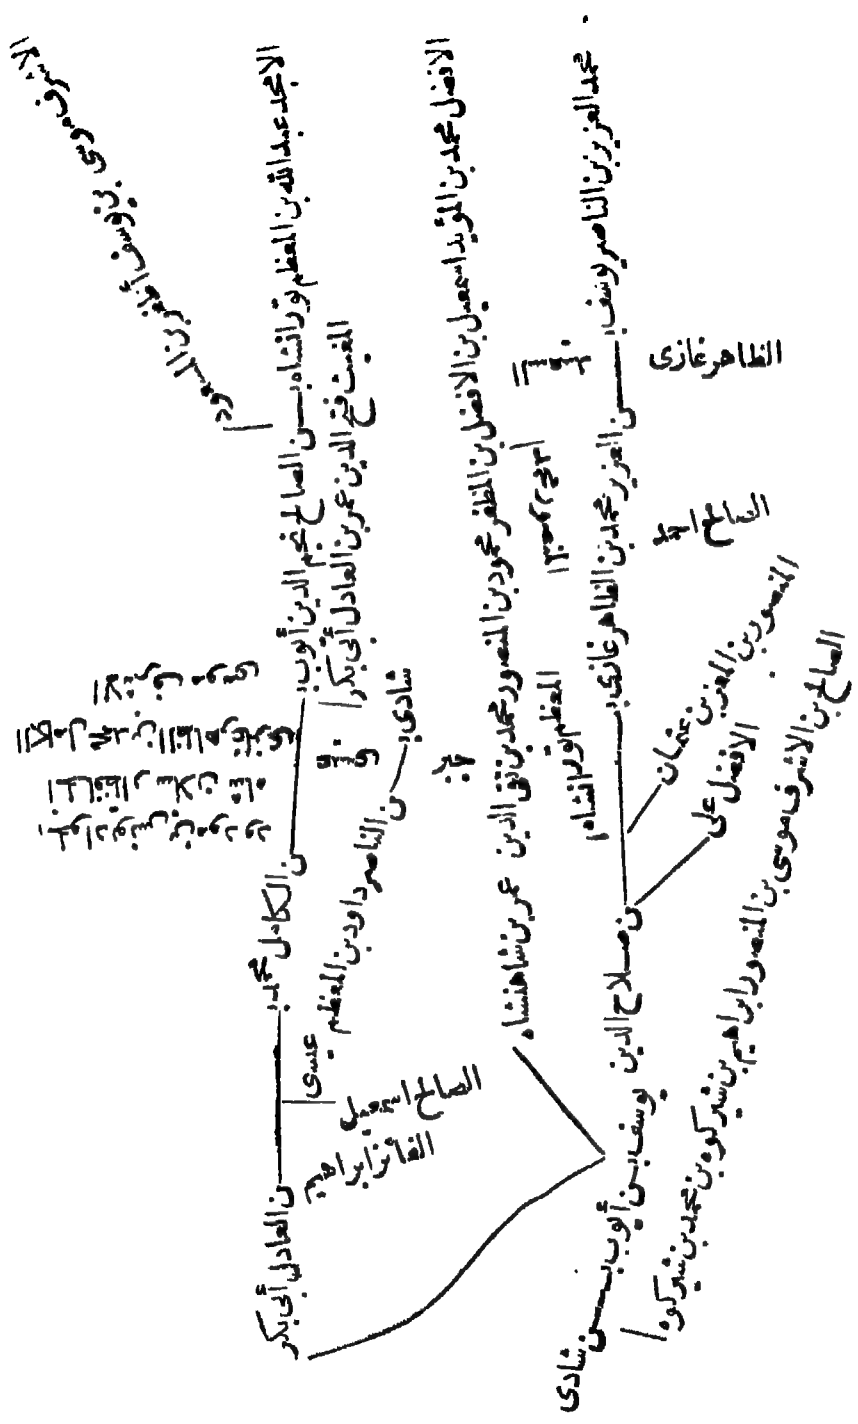 محمد العزيز بن الناصر يوسف بن العزيز محمد بن الظاهر غازى بن صلاح الدين يوسف بن أيوب بن شادى
الظاهر غازى
الصالح احمد
المنصور بن العزيز بن عثمان
الافضل على
الصالح بن الاشرف موسى بن المنصور ابراهيم بن شيركوه بن محمد بن شيركوه
المعظم توران شاه
الافضل محمد بن المؤيد اسمعيل بن الافضل بن المظفر محمود بن المنصور محمد بن تقى الدين عمر بن شاهنشاه
الامجد عبد الله بن المعظم توران شاه بن الصالح نجم الدين أيوب بن الكامل محمد بن العادل أبى بكر
المغيث فتح الدين عمر بن العادل أبى بكر
شادى بن الناصر داود بن المعظم عيسى
الصالح اسمعيل
الفائز ابراهيم
الاشرف موسى بن يوسف
الاشرف موسى
الكامل محمد بن الظاهر غازى
الحافظ ارسلان شاه
الجواد يونس بن مودود